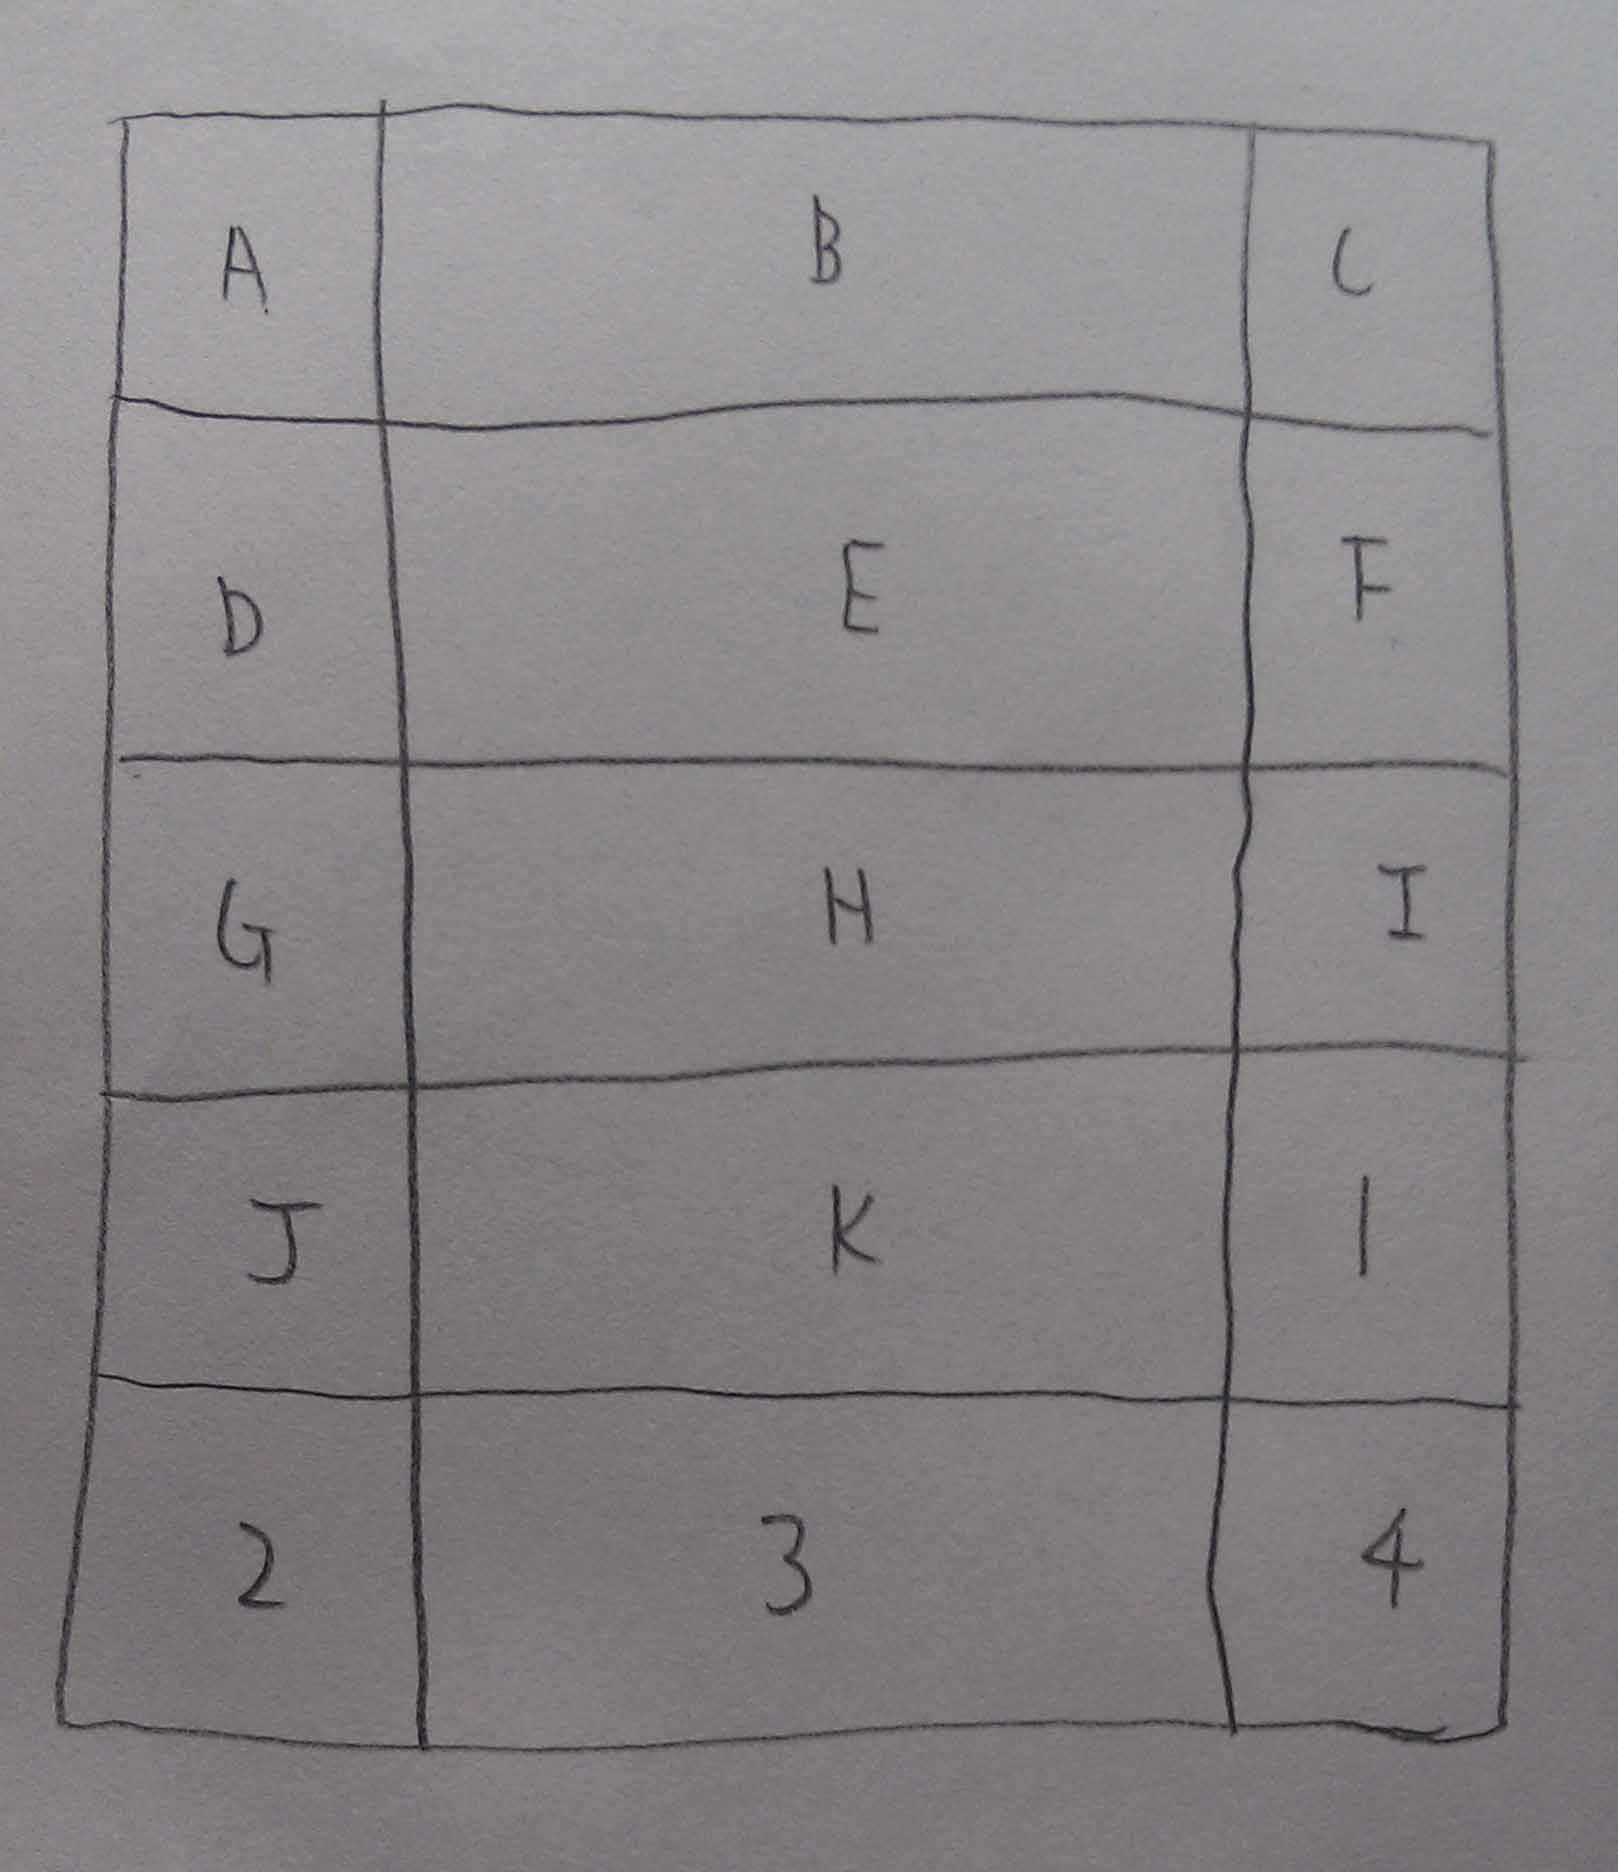 A B C
D E F
G H I
J K 1
2 3 4